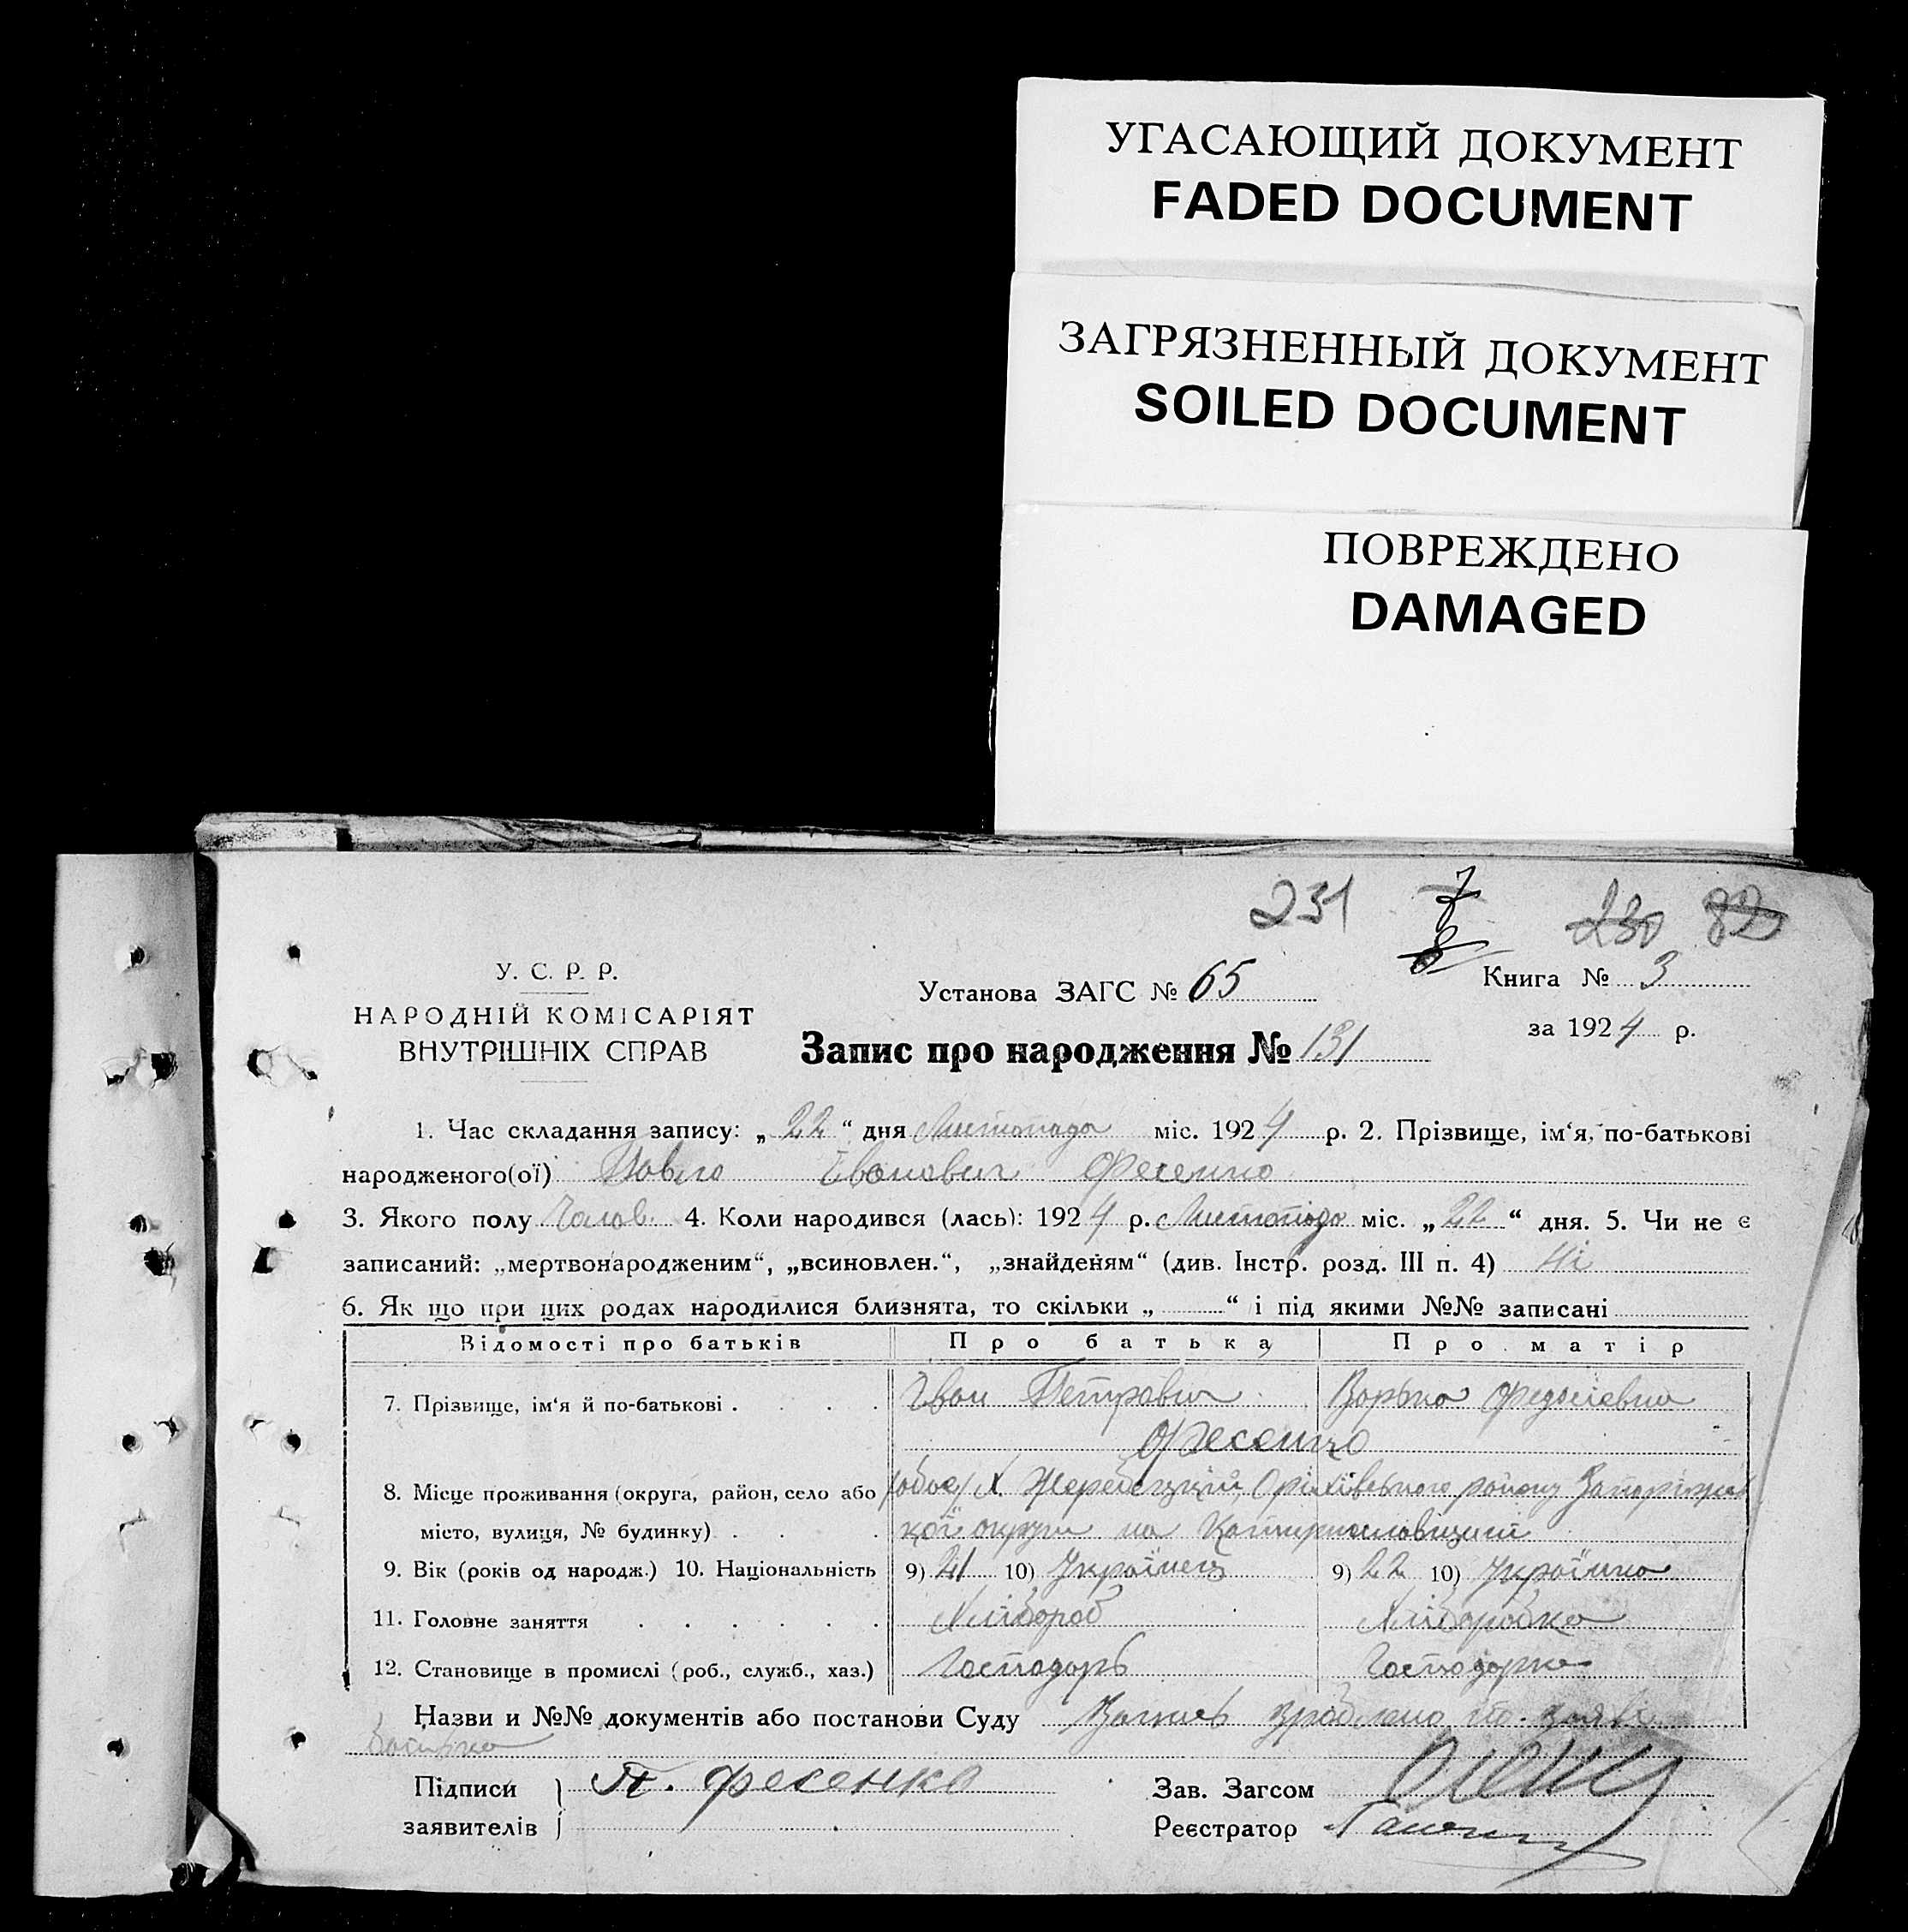 УГАСАЮЩИЙ ДОКУМЕНТ
FADED DOCUMENT
ЗАГРЯЗНЕННЫЙ ДОКУМЕНТ
SOILED DOCUMENT
ПОВРЕЖДЕНО
DAMAGED
231 7 8 230 82
У. С. Р. Р.
НАРОДНІЙ КОМІСАРІЯТ
ВНУТРІШНІХ СПРАВ
Установа ЗАГС № 65
Книга № 3
за 1924 р.
Запис про народження № 131
1. Час складання запису: „ 22 “ дня Листопада міс. 1924 р. 2. Прізвище, ім‘я, по-батькові
народженого(ої) Павло Іванович Фесенко
3. Якого полу Чолов. 4. Коли народився (лась): 1924 р. Листопада міс. „ 22 “ дня. 5. Чи не є
записаний: „мертвонародженим“, „всиновлен.“, „знайденям“ (див. Інстр. розд. III п. 4) Ні
6. Як що при цих родах народилися близнята, то скільки „ “ і під якими №№ записані
Відомості про батьків Про батька Про матір
7. Прізвище, ім‘я й по-батькові . . . . Іван Петрович Варька Федосіевна
Фесенко
8. Місце проживання (округа, район, село або Х. Жеребецький, Оріхівського району Запоріжсь
місто, вулиця, № будинку) . . . кої округи на Катеринославщині
9. Вік (років од народж.) 10. Національність 9) 21 10) Українець 9) 22 10) Українка
11. Головне заняття . . . . . . Хлібороб Хліборобка
12. Становище в промислі (роб., служб., хаз.) Господарь Господарка
Назви и №№ документів або постанови Суду Запись зроблено по заяві
батька
Підписи П. Фесенко Зав. Загсом
заявителів Реєстратор